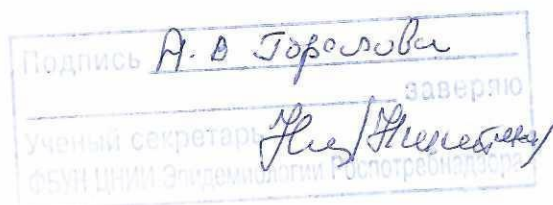 Подпись А. В Горелова
заверяю
Ученый секретарь
ФБУН ЦНИИ Эпидемиологии Роспотребнадзора